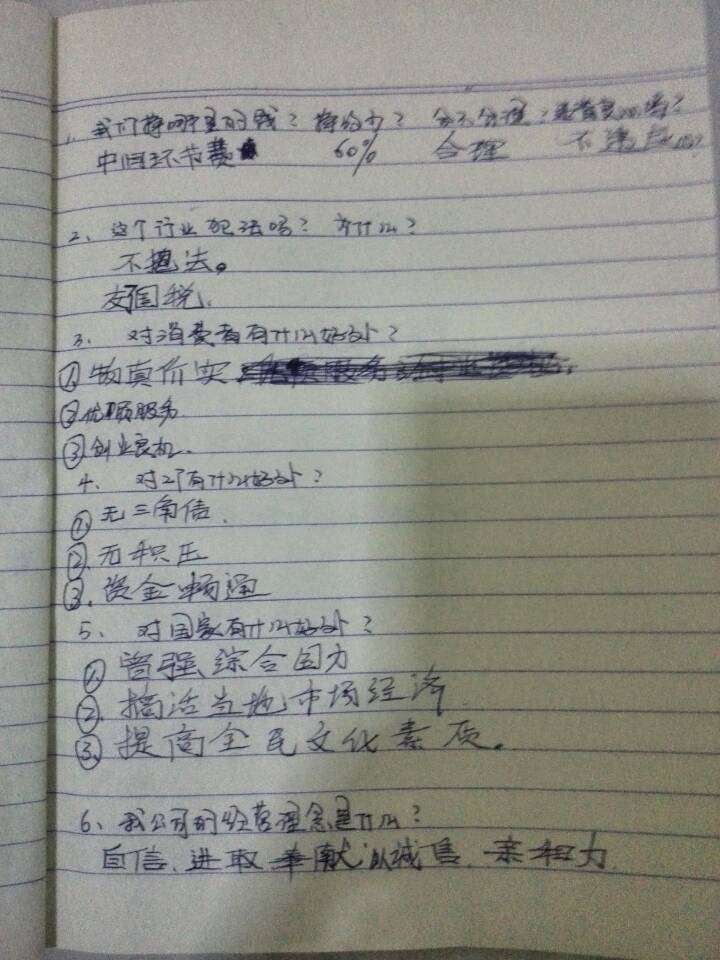 1、我们挣哪里的钱？挣多少？合不合理？
中间环节费 60% 合理 不违反
2、这个行业犯法吗？为什么？
不犯法。
交国税.
3、对消费者有什么好处？
①物真价实
②优质服务
③创业良机.
4、对厂有什么好处？
①无三角债.
②无积压
③.资金畅通
5、对国家有什么好处？
①增强综合国力
②.搞活当地市场经济
③.提高全民文化素质。
6、我公司的经营理念是什么？
自信.进取 奉献 以诚信.亲和力.